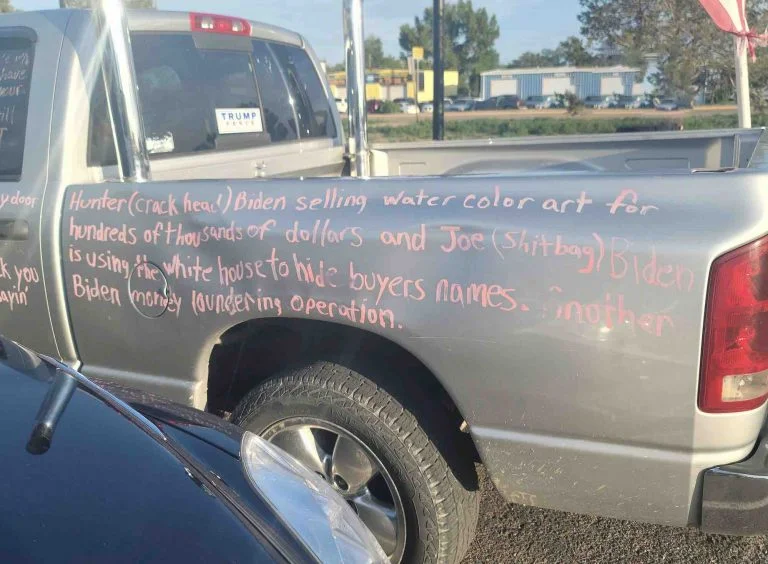 TRUMP
PENCE
have
your
y door
Hunter (crack head) Biden selling water color art for
hundreds of thousands of dollars and Joe (shitbag) Biden
is using the white house to hide buyers names. Another
Biden money loundering operation.
ck you
ayin'